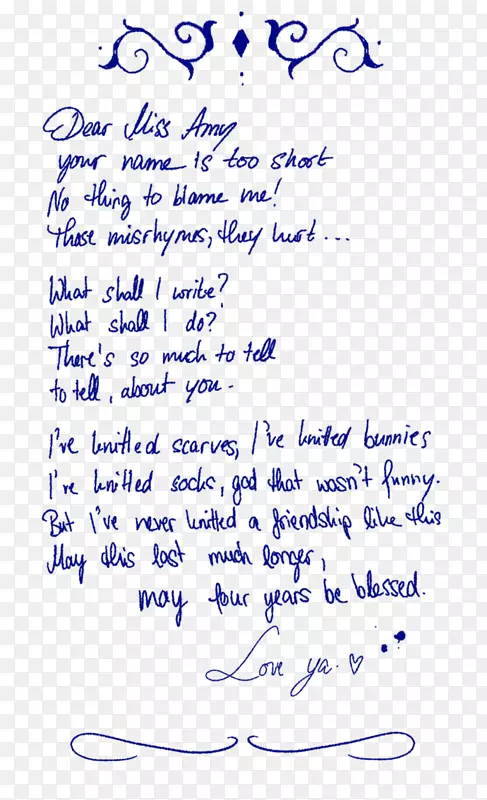 Dear Miss Amy
your name is too short
No thing to blame me!
Those misrhymes, they hurt...
What shall I write?
What shall I do?
There's so much to tell
to tell, about you.
I've knitted scarves, I've knitted bunnies
I've knitted socks, god that wasn't funny.
But I've never knitted a friendship like this
May this last much longer,
may four years be blessed.
Love ya. ♡